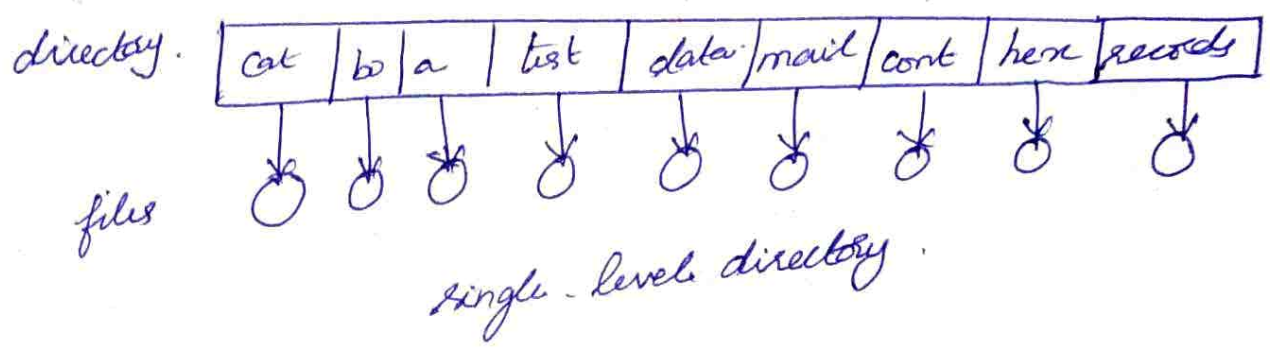 directory. cat bo a test data mail cont hex records
files
single-level directory.